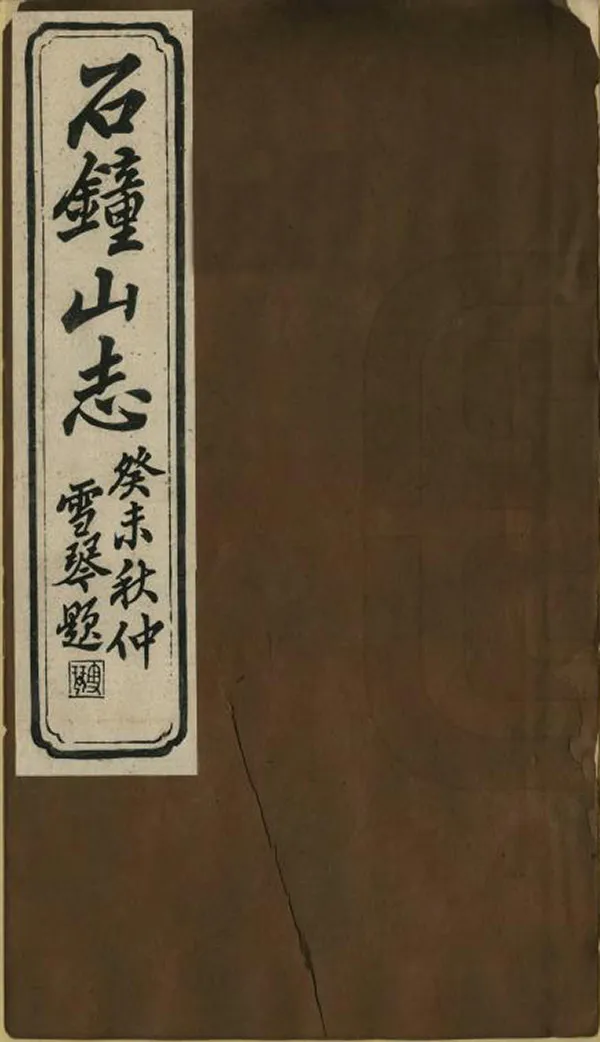 石鐘山志
癸未秋仲
雪琴題